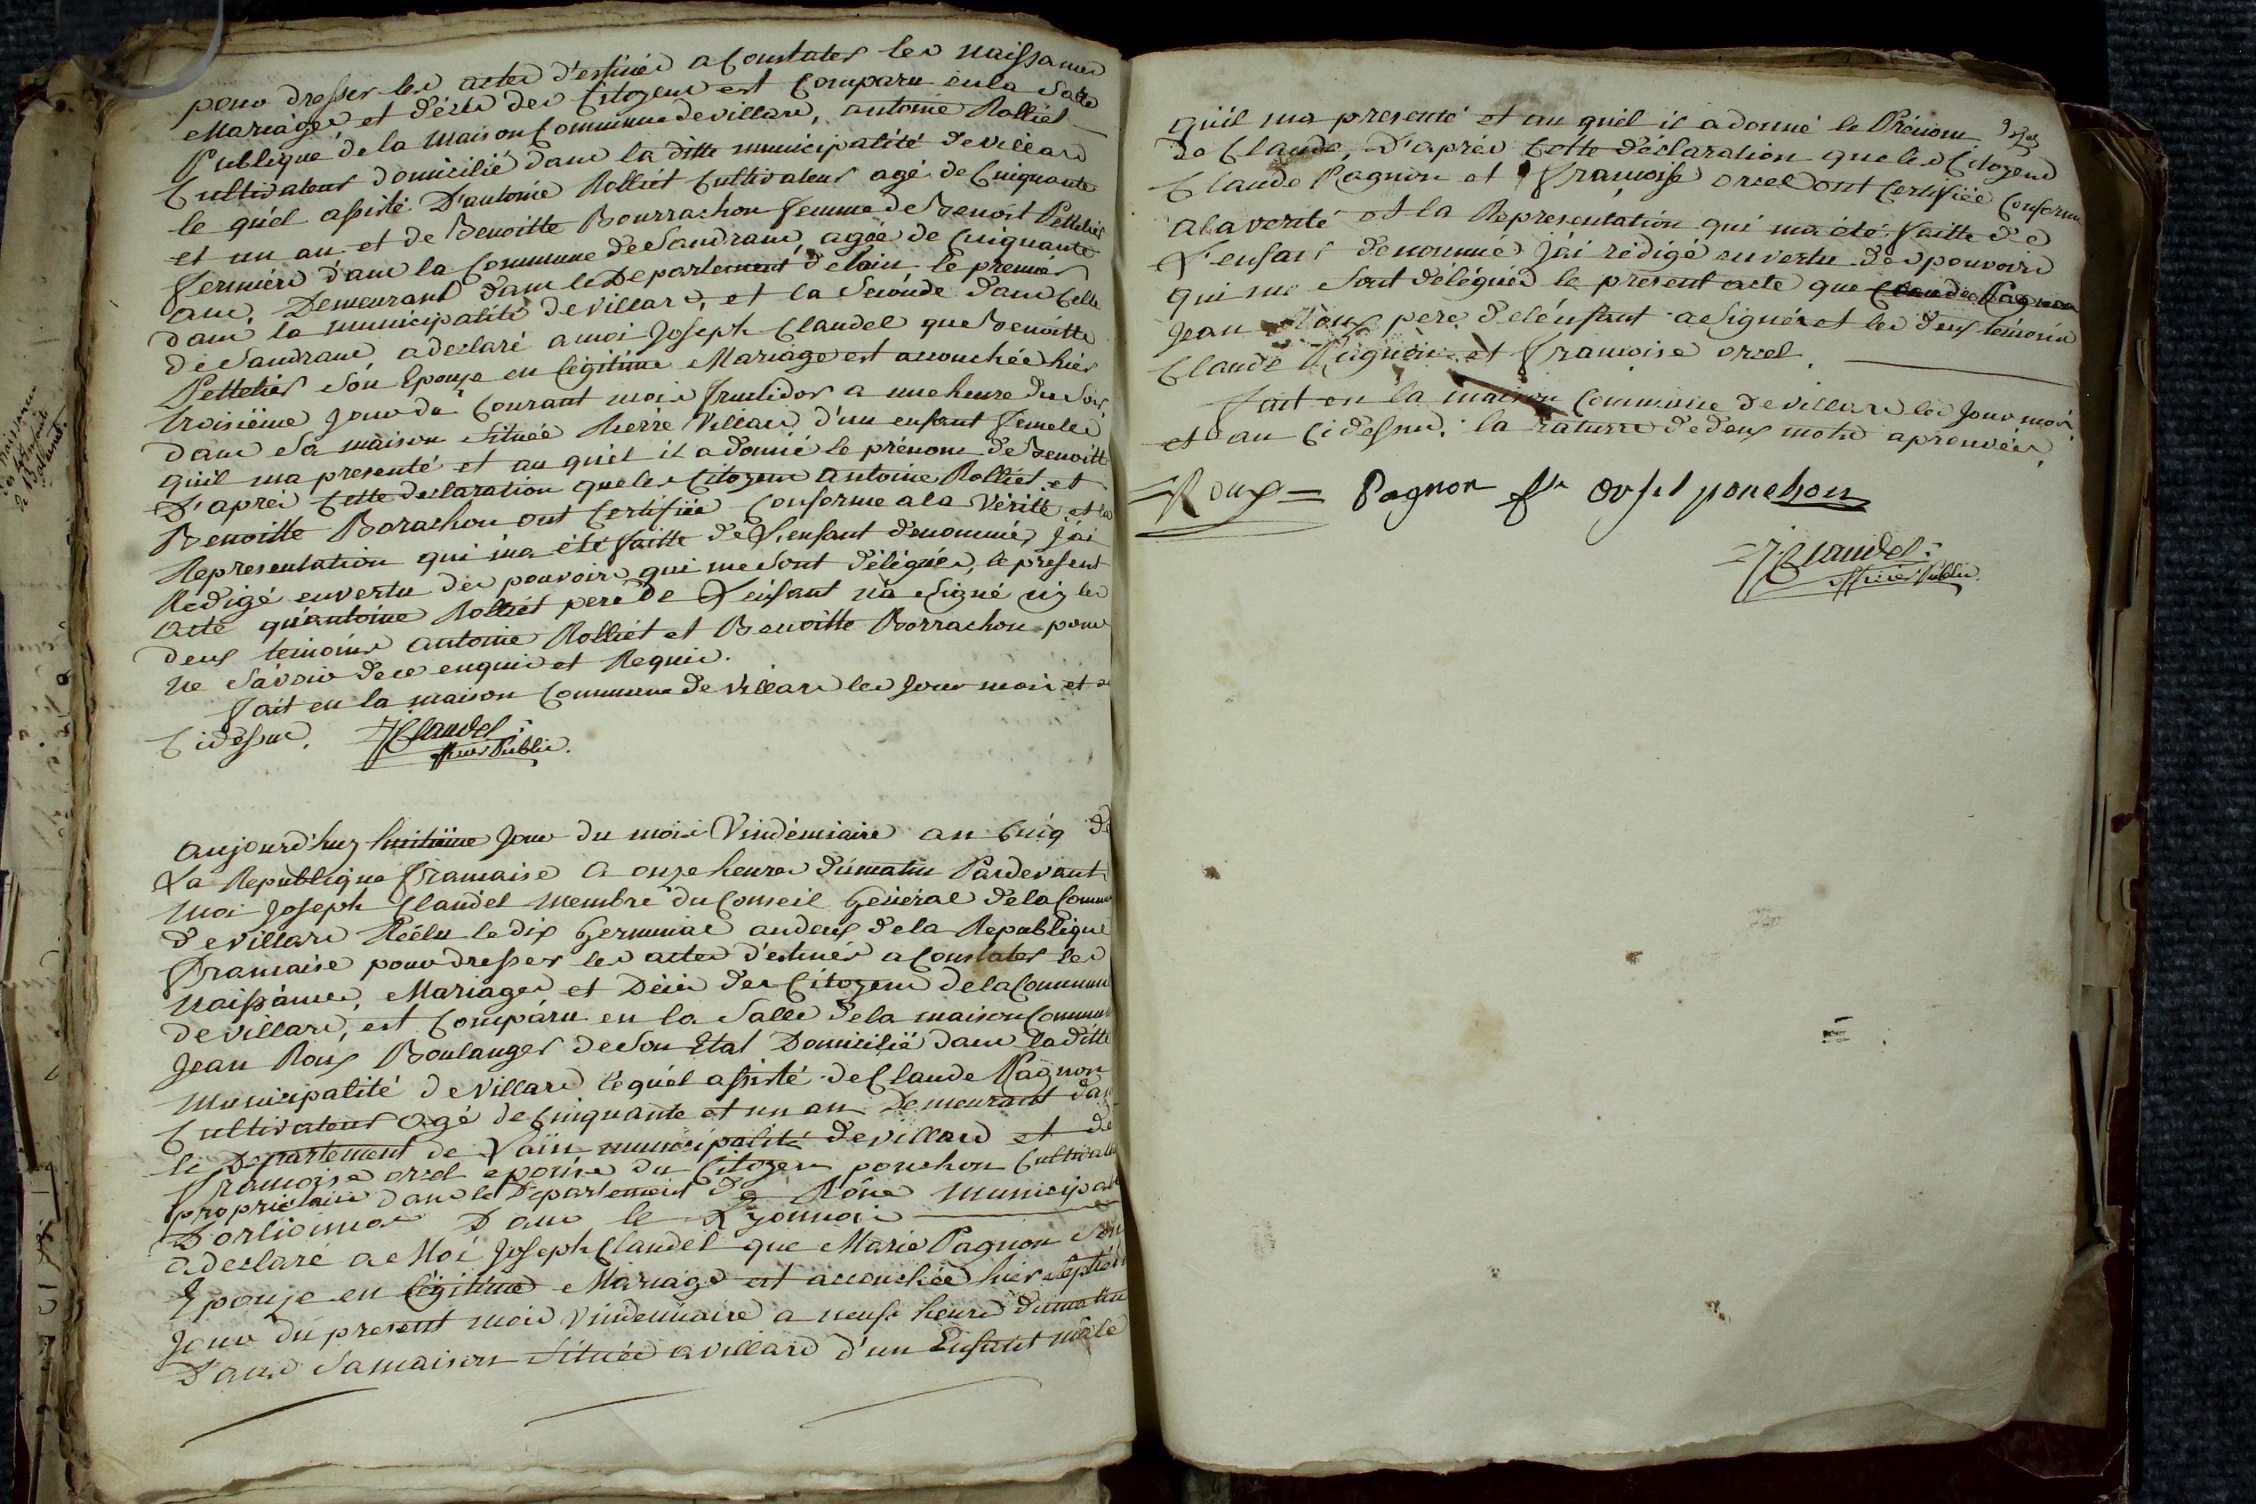 pour dresser les actes d'estinés a Constates les naissances
Mariages et décès des Citoyens est Comparu en la Salle
Publique de la maison Commune de villars, antoine Rolliet
Cultivateur domicilié dans la ditte municipalité de villars
le quel assisté D'antoine Rolliet Cultivateur agé de Cinquante
et un an et de Benoitte Bourrachon femme de Benoit Pelletier
fermière dans la Commune de Sandrans, agée de Cinquante
ans, Demeurant dans le Departement de lain, le premier
dans la municipalité de villars, et la Seconde dans Celle
de Sandrans a declaré a moi Joseph Claudel que Benoitte
Pelletier Son Epouse en légitime Mariage est accouchée hier
troisième jour du Courant mois fructidor a une heure du Soir,
dans Sa maison Située Villars d'un enfant femelle
quil ma presenté et au quel il a donné le prénom de Benoitte
D'après Cette declaration que les Citoyens antoine Rolliet et
Benoitte Borachon ont Certifiée Conforme a la Vérité et la
Representation qui ma été faitte de L'enfant denommé, J'ai
Redigé en vertu des pouvoirs qui me Sont délégués, le present
acte qu'antoine Rolliet pere de L'enfant na Signé ny les
deux témoins antoine Rolliet et Benoitte Borrachon pour
ne Savoir de ce enquis et Requis.
fait en la maison Commune de Villars les Jour mois et an
Cidessus. JClaudel
officier Public.
aujourd'huy huitième Jour du mois Vindémiaire an Cinq de
La Republique francaise a onze heures du matin Pardevant
moi Joseph Claudel membre du Conseil Général de la Commune
de villars Réélu le dix Germinal an deux de la Republique
francaise pour dresser les actes d'estinés a Constates les
naissances, Mariages et Décès des Citoyens de la Commune
de villars, est Comparu en la Salle de la maison Commune
Jean Roux Boulanger de Son Etat Domicilié dans la ditte
municipalité de villars le quel assisté de Claude Pagnon
Cultivateur agé de Cinquante et un an Demeurant dans
le Departement de Lain municipalité de villars et de
francoise orsel epouse du Citoyen ponchon Cultivateur
proprietaire dans le Departement de Rône municipalité
D'orlienas Dans le Lyonnois
a declaré a Moi Joseph Claudel que Marie Pagnon Son
Epouse en légitime Mariage est accouchée hier Septième
Jour du present mois Vindemiaire a neuf heures du matin
Dans Sa maison Située a villars d'un Enfant mâle
quil ma presenté et au quel il a donné le Prénom
de Claude, D'après Cette déclaration que les Citoyens
Claude Pagnon et francoise orsel ont Certifiée Conforme
a la verité et la Representation qui ma été faitte de
L'enfant denommé J'ai rédigé en vertu des pouvoirs
qui me Sont délégués le present acte que Claude Pagnon
Jean Roux pere de lénfant a Signé et les deux témoins
Claude Pagnon et francoise orsel.
fait en la maison Commune de villars les Jour mois
et an Cidessus. la rature de deux mots aprouvées,
=Roux= Pagnon fse orsel ponchon
JClaudel
officier Public.